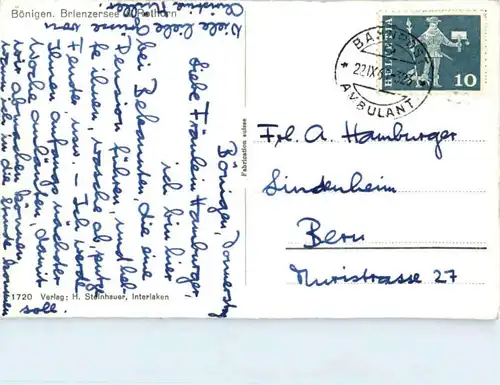 Bönigen. Brienzersee u. Rothorn
Bönigen, Donnerstag
Liebe Fräulein Hamburger,
ich bin hier
bei Bekannten, die eine
Pension führen, und hel-
fe ihnen, wasche ab, putze
Fenster usw. – Ich werde
Ihnen anfangs nächster
Woche anläuten, damit
wir abmachen können,
wann ich in die Stunde kommen
soll.
Viele liebe Grüsse von
Christine
1720 Verlag: H. Steinhauer, Interlaken
Fabrication suisse
HELVETIA
10
BAHNPOST
22.IX
AMBULANT
Frl. A. Hamburger
Lindenheim
Bern
Muristrasse 27